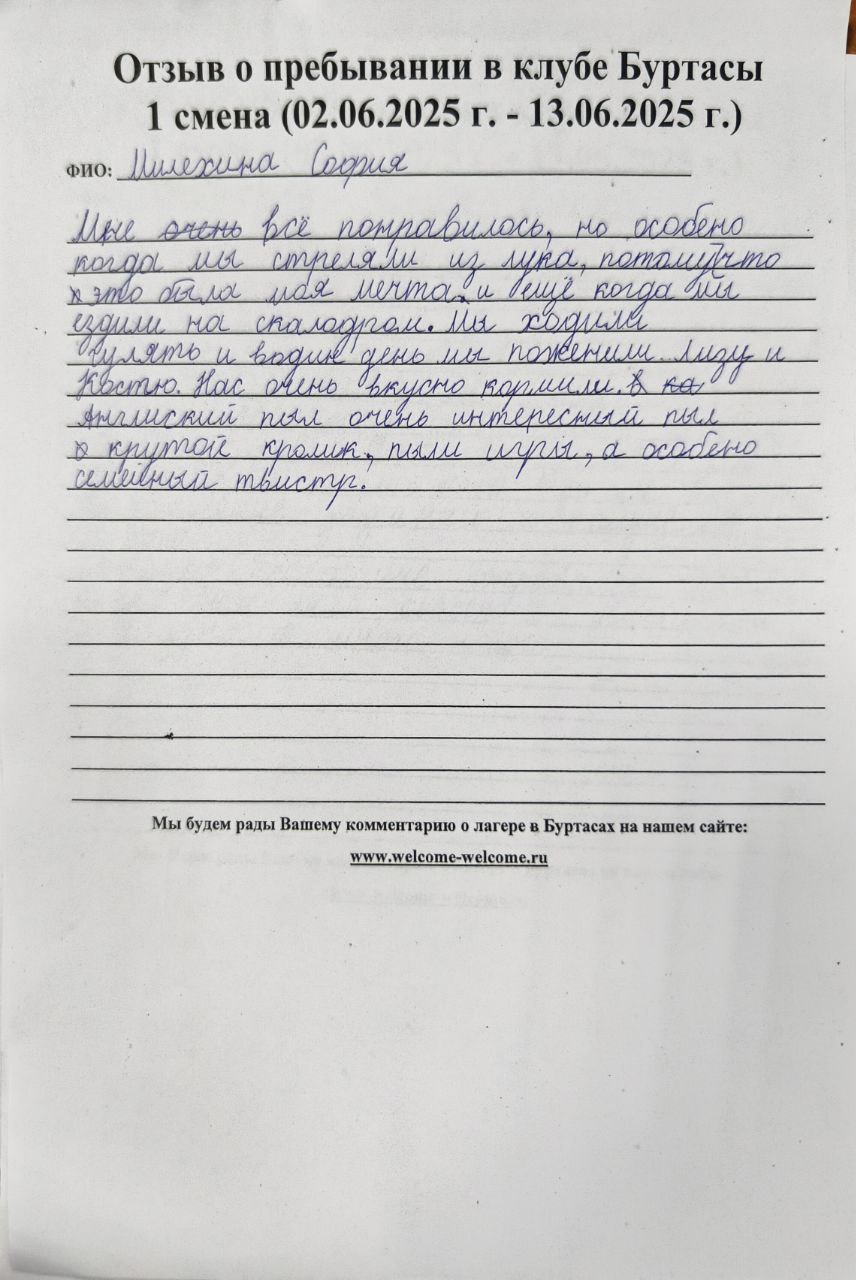 Отзыв о пребывании в клубе Буртасы
1 смена (02.06.2025 г. - 13.06.2025 г.)
ФИО: Милехина София
Мне очень всё понравилось, но особено
когда мы стреляли из лука, потомучто
это была моя мечта, и ещё когда мы
ездили на скалодром. Мы ходили
гулять и водин день мы поженили Лизу и
Костю. Нас очень вкусно кормили.
Англиский пыл очень интересный пыл
крутой кролик, пыли игры, а особено
семейный твистр.
Мы будем рады Вашему комментарию о лагере в Буртасах на нашем сайте:
www.welcome-welcome.ru